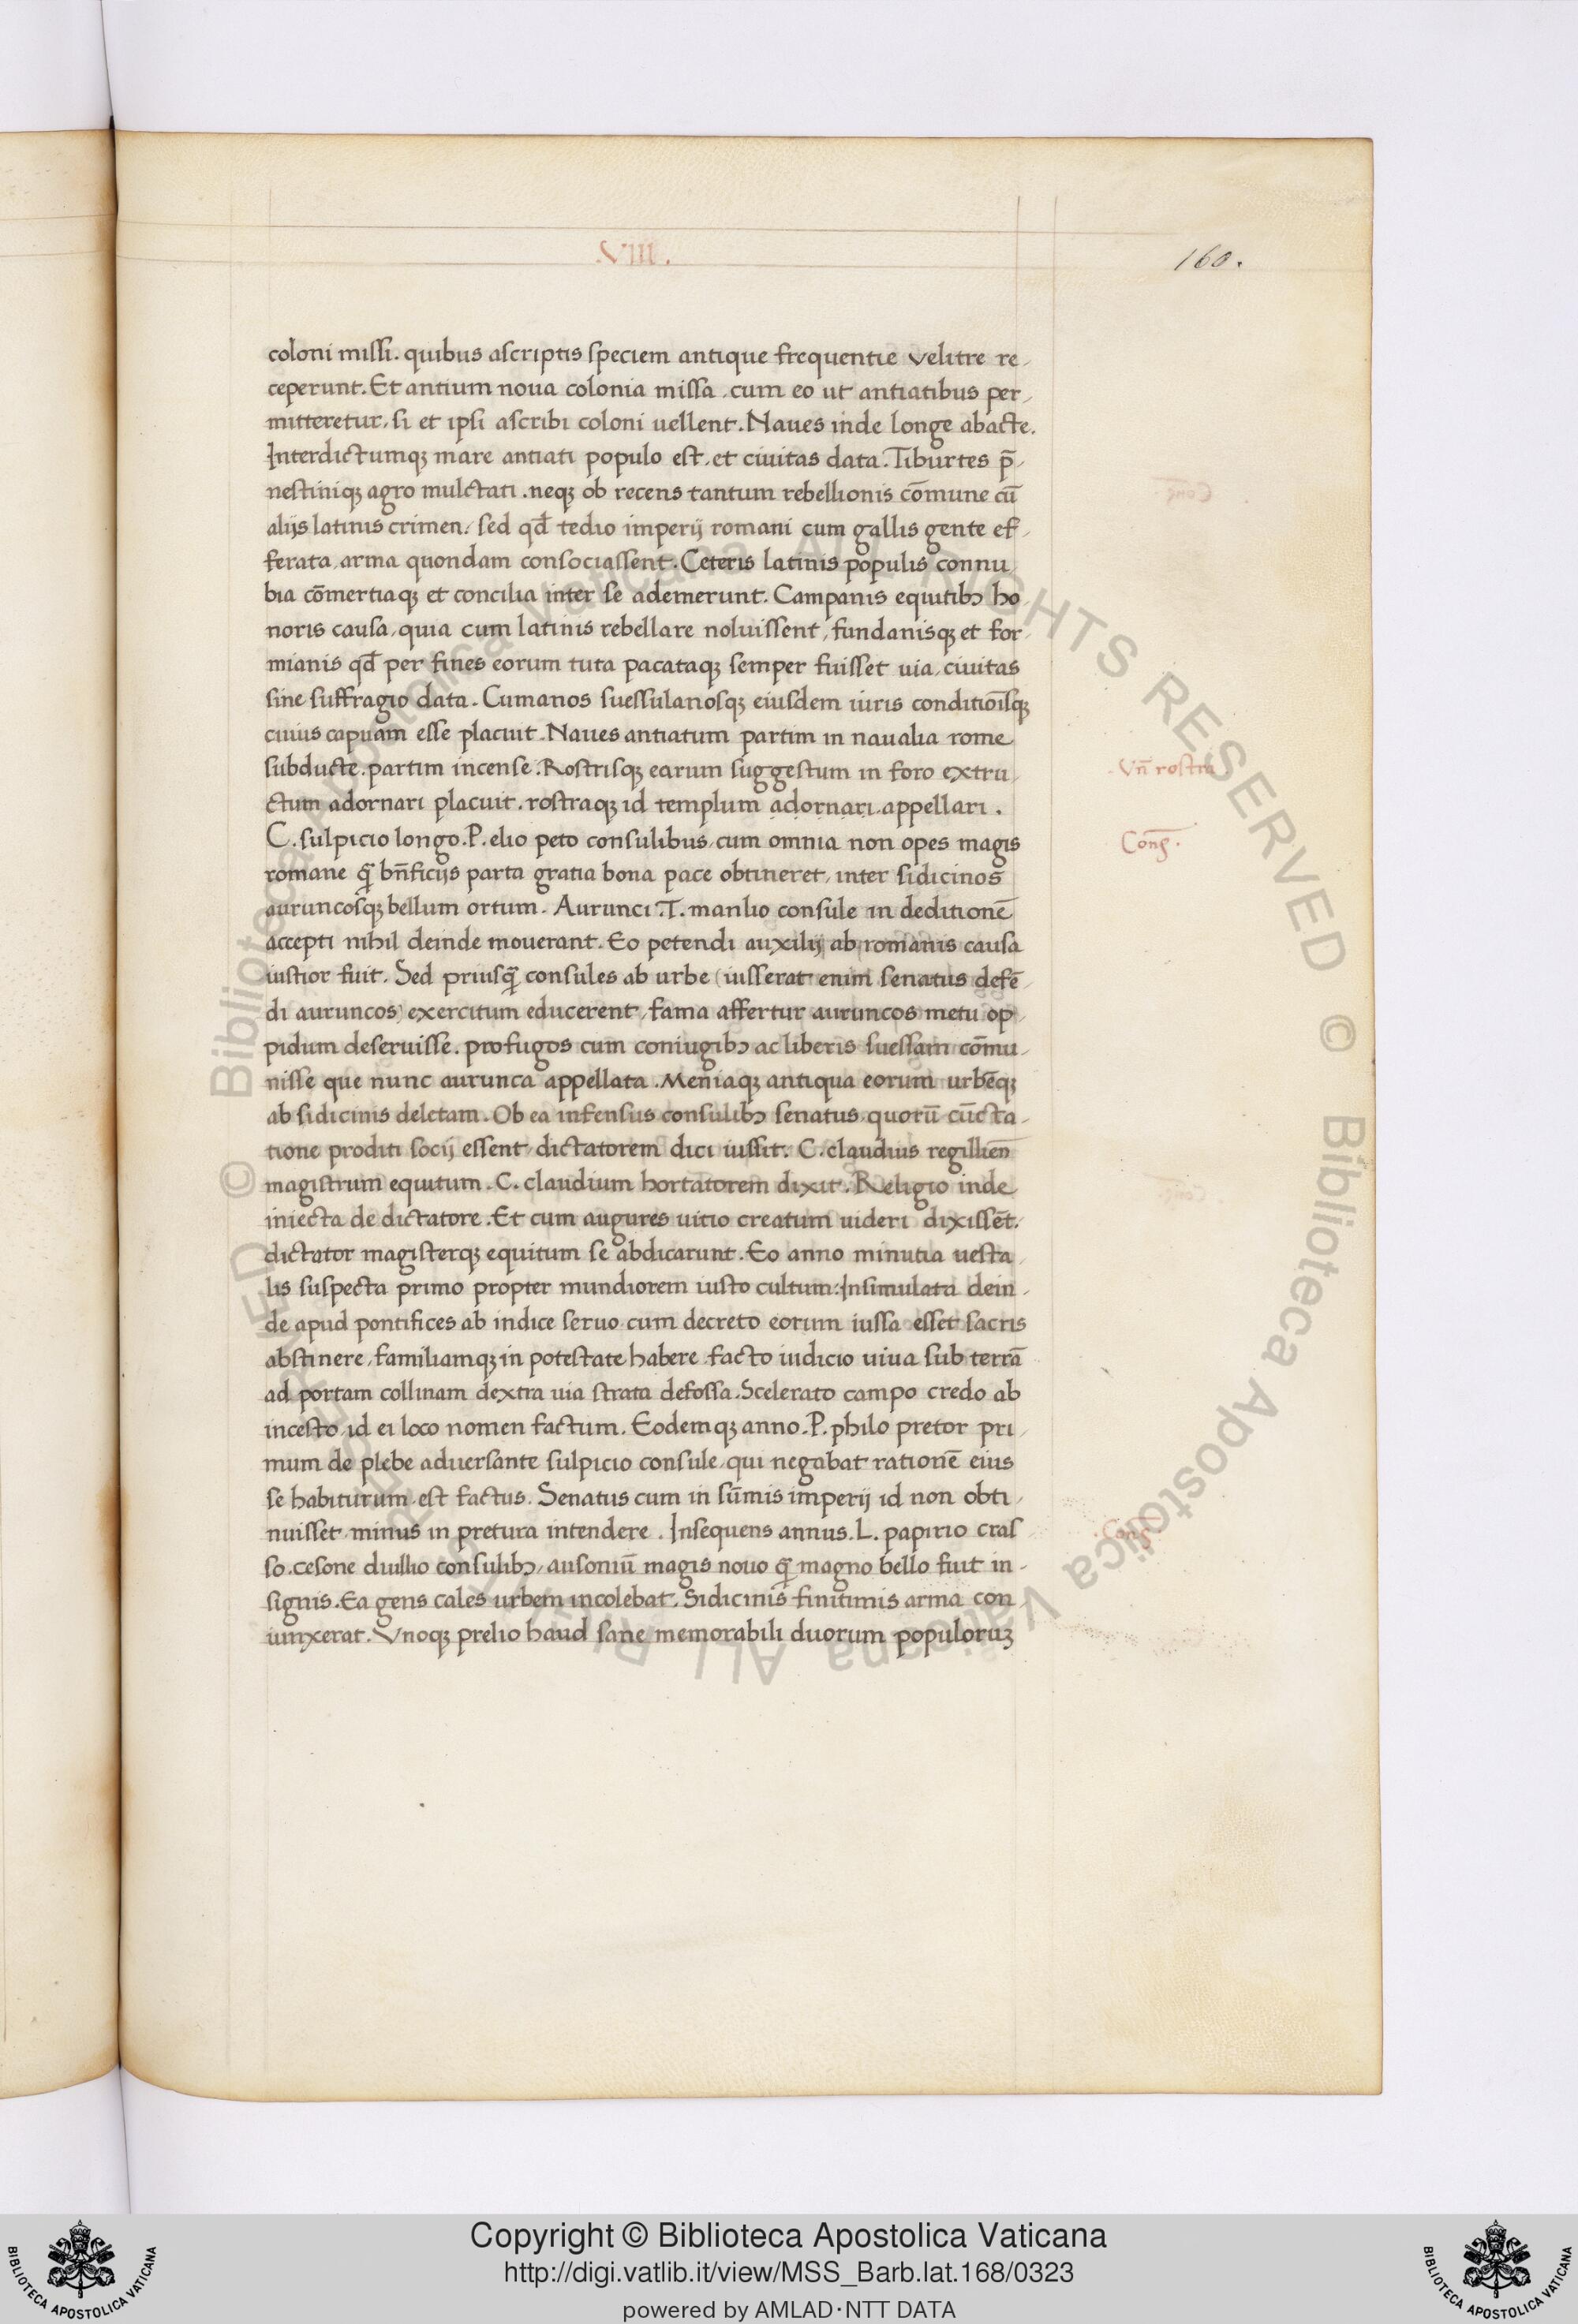 .VIII.
160.
coloni missi. quibus ascriptis speciem antique frequentie velitre re,
ceperunt. Et antium noua colonia missa, cum eo ut antiatibus per,
mitteretur, si et ipsi ascribi coloni uellent. Naues inde longe abacte.
Interdictumqꝫ mare antiati populo est, et ciuitas data. Tiburtes p̄,
nestiniqꝫ agro mulctati. neqꝫ ob recens tantum rebellionis cōmune cū
alijs latinis crimen, sed qđ tedio imperij romani cum gallis gente ef,
ferata, arma quondam consociassent. Ceteris latinis populis connu,
bia cōmertiaqꝫ et concilia inter se ademerunt. Campanis equitibꝫ ho,
noris causa, quia cum latinis rebellare noluissent, fundanisqꝫ et for,
mianis qđ per fines eorum tuta pacataqꝫ semper fuisset uia, ciuitas
sine suffragio data. Cumanos suessulanosqꝫ eiusdem iuris conditiōisqꝫ
cuius capuam esse placuit. Naues antiatum partim in naualia rome
subducte. partim incense. Rostrisqꝫ earum suggestum in foro extru,
ctum adornari placuit. rostraqꝫ id templum adornari appellari.
Vn̄ rostra
C. sulpicio longo. P. elio peto consulibus, cum omnia non opes magis
Cons̄.
romane q̄ bn̄ficijs parta gratia bona pace obtineret, inter sidicinos
auruncosqꝫ bellum ortum. Aurunci. T. manlio consule in deditionē
accepti nihil deinde mouerant. Eo petendi auxilij ab romanis causa
iustior fuit. Sed priusq̄ consules ab urbe (iusserat enim senatus defē,
di auruncos) exercitum educerent, fama affertur auruncos metu op,
pidum deseruisse. profugos cum coniugibꝫ ac liberis suessam cōmu,
nisse que nunc aurunca appellata. Meniaqꝫ antiqua eorum urbēqꝫ
ab sidicinis delctam. Ob ea infensus consulibꝫ senatus, quorū cūcta,
tione proditi socij essent, dictatorem dici iussit. C. claudius regillien̄
magistrum equitum. C. claudium hortatorem dixit. Religio inde
iniecta de dictatore. Et cum augures uitio creatum uideri dixissēt.
dictator magisterqꝫ equitum se abdicarunt. Eo anno minutia uesta,
lis suspecta primo propter mundiorem iusto cultum: Insimulata dein,
de apud pontifices ab indice seruo cum decreto eorum iussa esset sacris
abstinere, familiamqꝫ in potestate habere facto iudicio uiua sub terrā
ad portam collinam dextra uia strata defossa. Scelerato campo credo ab
incesto, id ei loco nomen factum. Eodemqꝫ anno. P. philo pretor pri,
mum de plebe aduersante sulpicio consule, qui negabat rationē eius
se habiturum, est factus. Senatus cum in sūmis imperij id non obti,
nuisset, minus in pretura intendere. Insequens annus. L. papirio cras
Cons̄.
so. cesone duillio consulibꝫ, ausoniū magis nouo q̄ magno bello fuit in,
signis. Ea gens cales urbem incolebat. Sidicinis finitimis arma con,
iunxerat. Vnoqꝫ prelio haud sane memorabili duorum populoruꝫ
© Biblioteca Apostolica Vaticana ALL RIGHTS RESERVED
© Biblioteca Apostolica Vaticana ALL RIGHTS RESERVED
BIBLIOTECA APOSTOLICA VATICANA
Copyright © Biblioteca Apostolica Vaticana
http://digi.vatlib.it/view/MSS_Barb.lat.168/0323
powered by AMLAD·NTT DATA
BIBLIOTECA APOSTOLICA VATICANA